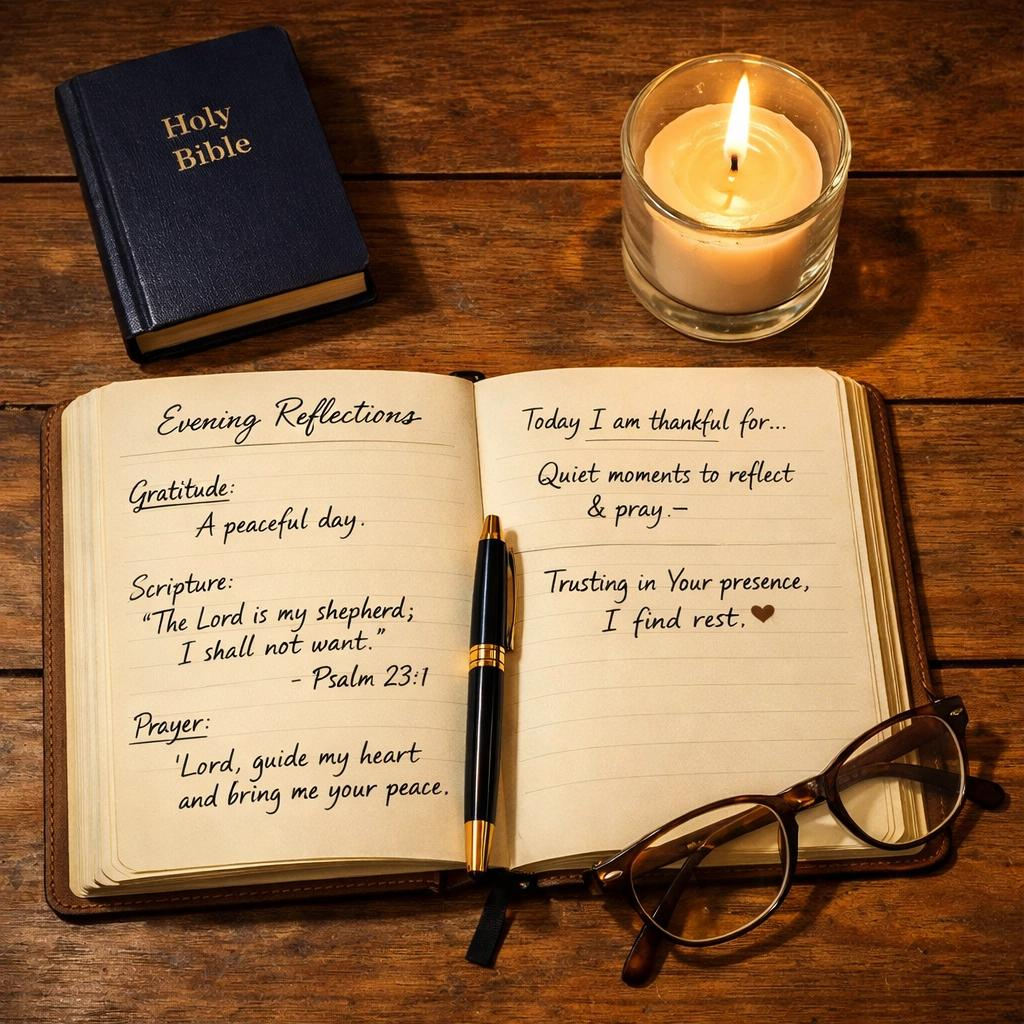 Holy
Bible
Evening Reflections
Gratitude:
A peaceful day.
Scripture:
“The Lord is my shepherd;
I shall not want.”
- Psalm 23:1
Prayer:
'Lord, guide my heart
and bring me your peace.
Today I am thankful for...
Quiet moments to reflect
& pray.—
Trusting in Your presence,
I find rest.♥